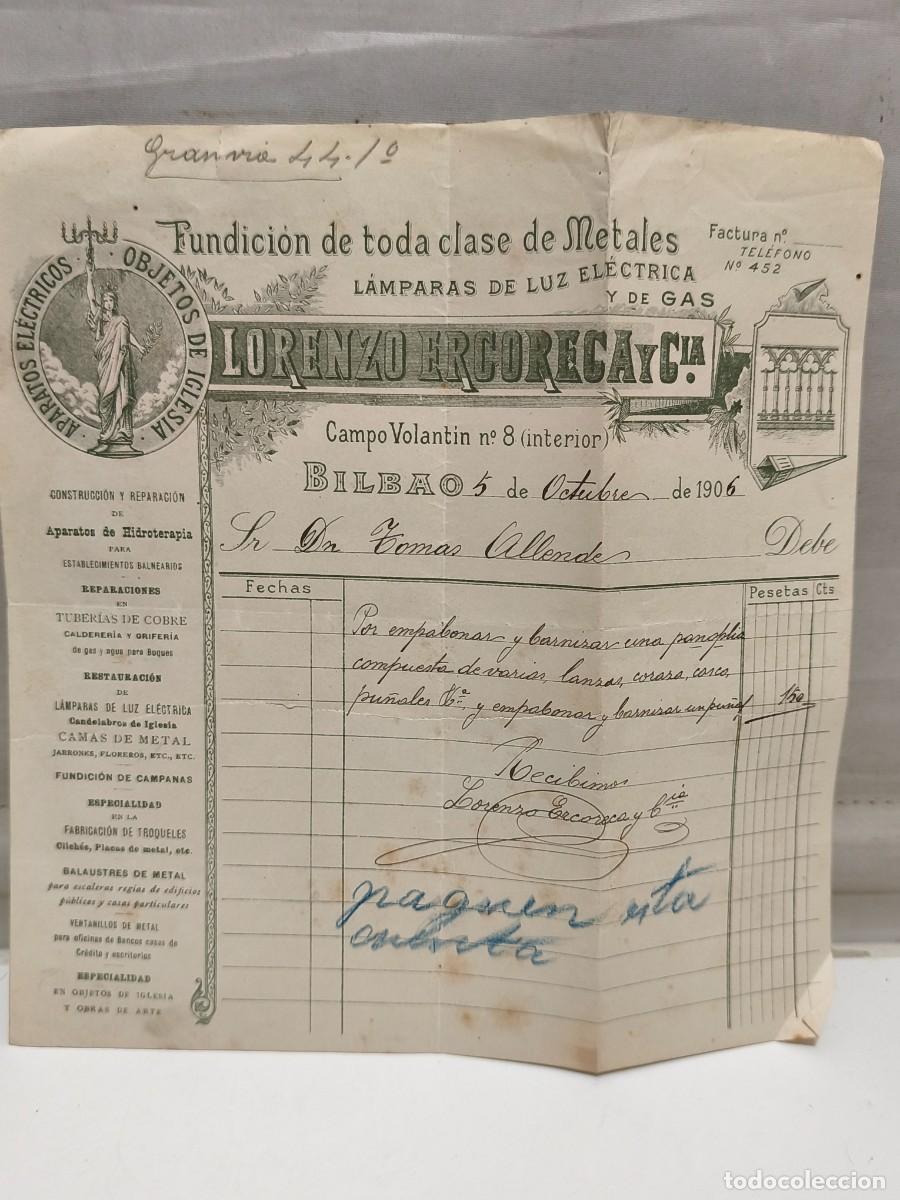 Granvia 44-1º
Fundición de toda clase de Metales
LÁMPARAS DE LUZ ELÉCTRICA
Y DE GAS
Factura nº.
TELÉFONO
Nº 452
APARATOS ELÉCTRICOS · OBJETOS DE IGLESIA ·
LORENZO ERCORECA Y CIA.
Campo Volantin nº 8 (interior)
BILBAO 5 de Octubre de 1906
Sr Dn Tomas Allende Debe
Fechas
Pesetas Cts
Por empabonar y barnizar una panoplia
compuesta de varias, lanzas, coraza, casco,
puñales &ª. y empabonar y barnizar un puñal 150
Recibimos
Lorenzo Ercoreca y Cia
paguen esta
cuenta
CONSTRUCCIÓN Y REPARACIÓN
DE
Aparatos de Hidroterapia
PARA
ESTABLECIMIENTOS BALNEARIOS
REPARACIONES
EN
TUBERÍAS DE COBRE
CALDERERÍA Y GRIFERÍA
de gas y agua para Buques
RESTAURACIÓN
DE
LÁMPARAS DE LUZ ELÉCTRICA
Candelabros de Iglesia
CAMAS DE METAL
JARRONES, FLOREROS, ETC., ETC.
FUNDICIÓN DE CAMPANAS
ESPECIALIDAD
EN LA
FABRICACIÓN DE TROQUELES
Clichés, Placas de metal, etc.
BALAUSTRES DE METAL
para escaleras regias de edificios
públicos y casas particulares
VENTANILLOS DE METAL
para oficinas de Bancos casas de
Crédito y escritorios
ESPECIALIDAD
EN OBJETOS DE IGLESIA
Y OBRAS DE ARTE
todocoleccion